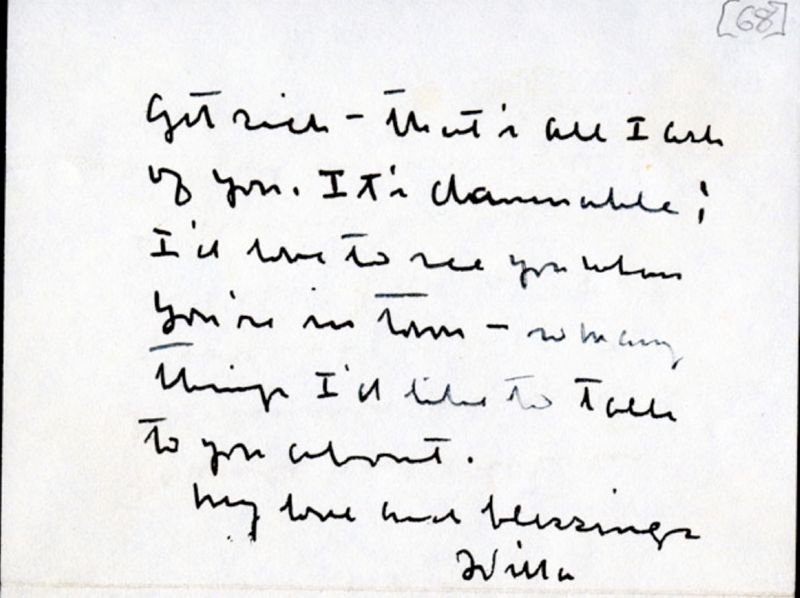 [68]
Get rich - that's all I ask
of you. It's damnable;
I'd love to see you when
you're in town - so many
things I'd like to talk
to you about.
My love and blessings
Willa